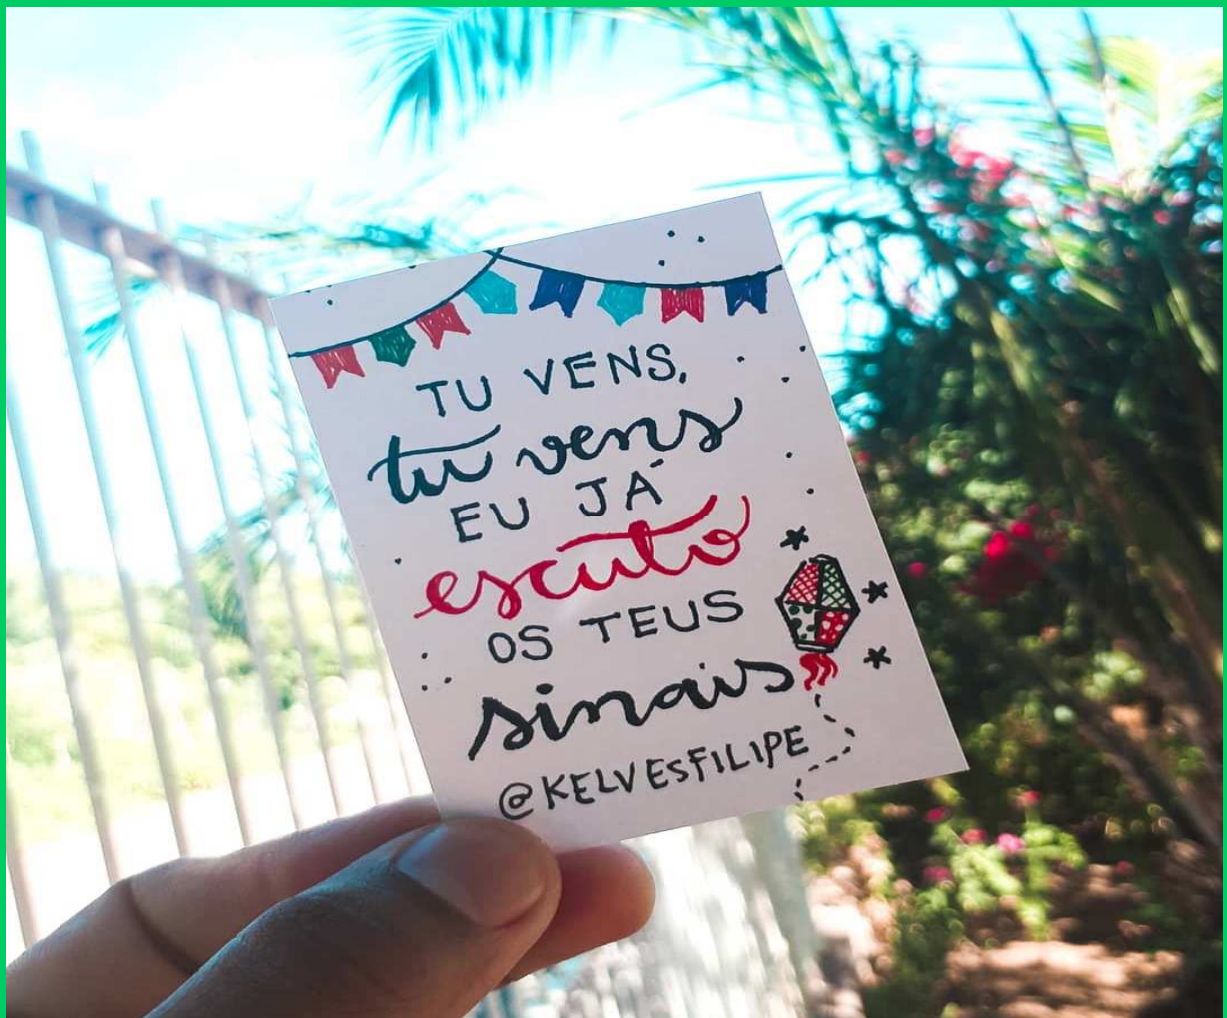 TU VENS,
tu vens
EU JÁ
escuto
OS TEUS
sinais
@KELVESFILIPE